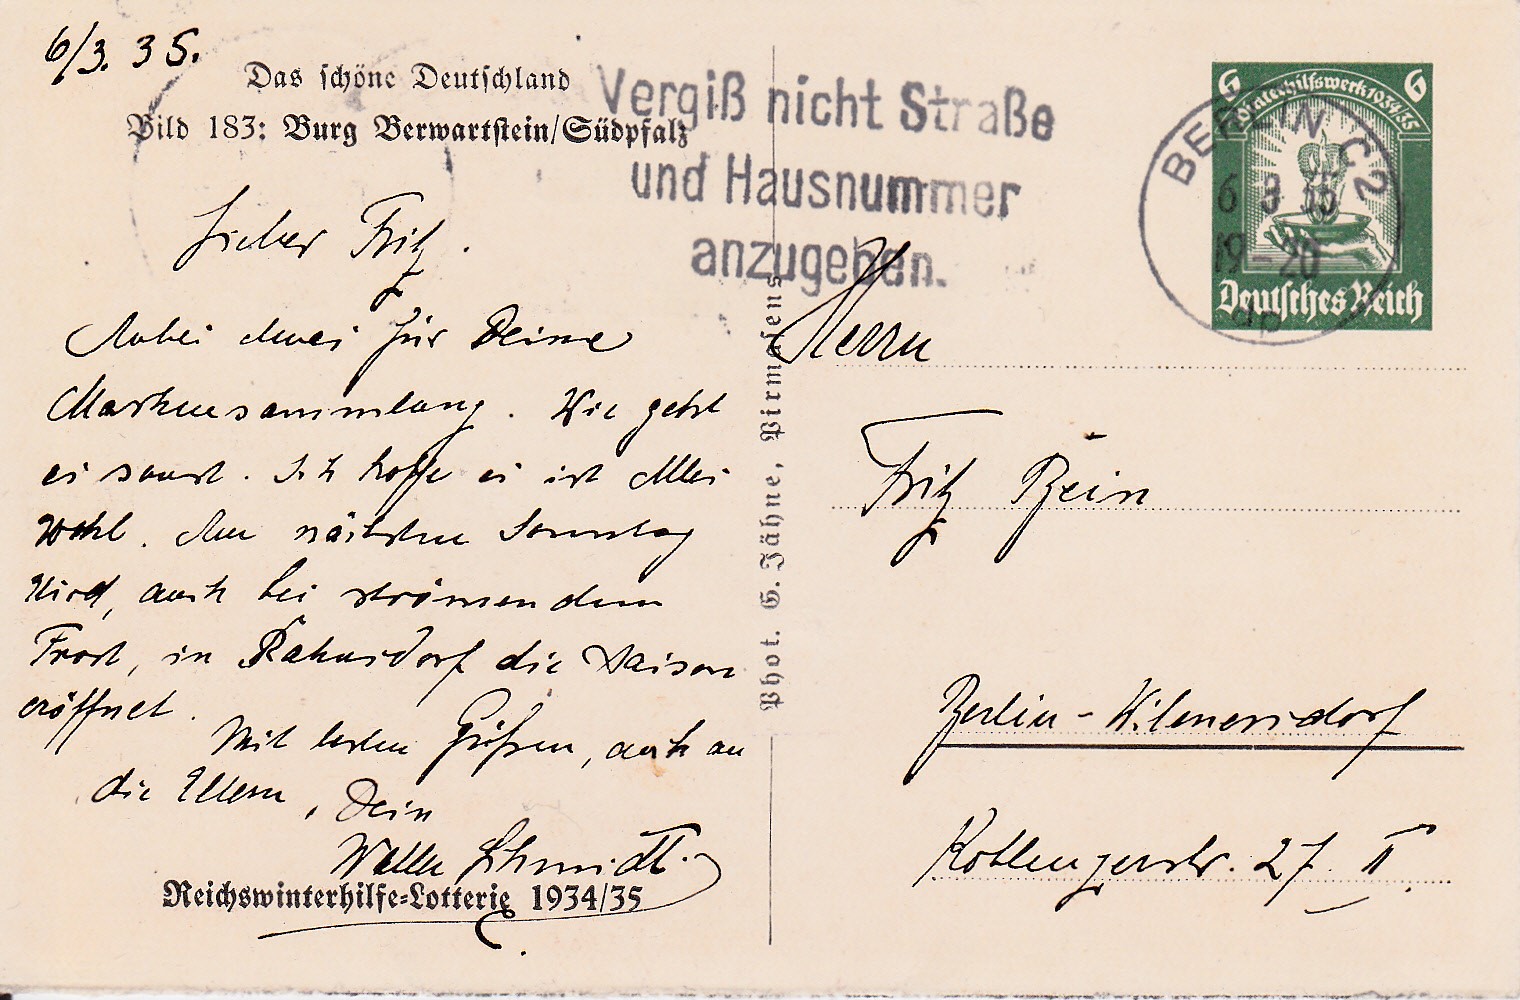 6/3. 35.
Das schöne Deutschland
Bild 183: Burg Berwartstein/Südpfalz
Lieber Fritz.
Anbei etwas für Deine
Markensammlung. Wie geht
es sonst. Ich hoffe es ist Alles
Wohl. Am nächsten Sonntag
wird, auch bei strömendem
Frost, in Rahnsdorf die Saison
eröffnet.
Mit besten Grüßen, auch an
die Eltern, Dein
Walter Schmidt.
Reichswinterhilfe=Lotterie 1934/35
Phot. G. Jähne, Pirmasens
Vergiß nicht Straße
und Hausnummer
anzugeben.
6 6
Winterhilfswerk 1934/35
Deutsches Reich
BERLIN C2
6 3 35
19-20
Herrn
Fritz Bein
Berlin-Wilmersdorf
Koblenzerstr. 27 II.